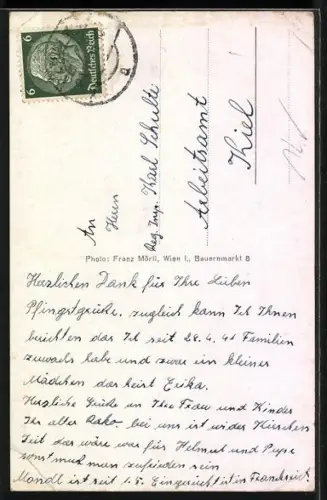 6
Deutsches Reich
6
An
Herrn
Reg. Insp. Karl Schulte
Arbeitsamt
Kiel
Photo: Franz Mörtl, Wien I., Bauernmarkt 8
Herzlichen Dank für Ihre lieben
Pfingstgrüße. zugleich kann Ich Ihnen
berichten das Ich seit 28.4.41 Familien
zuwachs habe und zwar ein kleiner
Mädchen das heist Erika.
Herzliche Grüße an Ihre Frau und Kinder
Ihr alter bei uns ist wider Kirschen
Zeit das wäre was für Helmut und Pupe
sonst muß man zufrieden sein
ist seit 1.5. Eingerückt ist in Frankreich